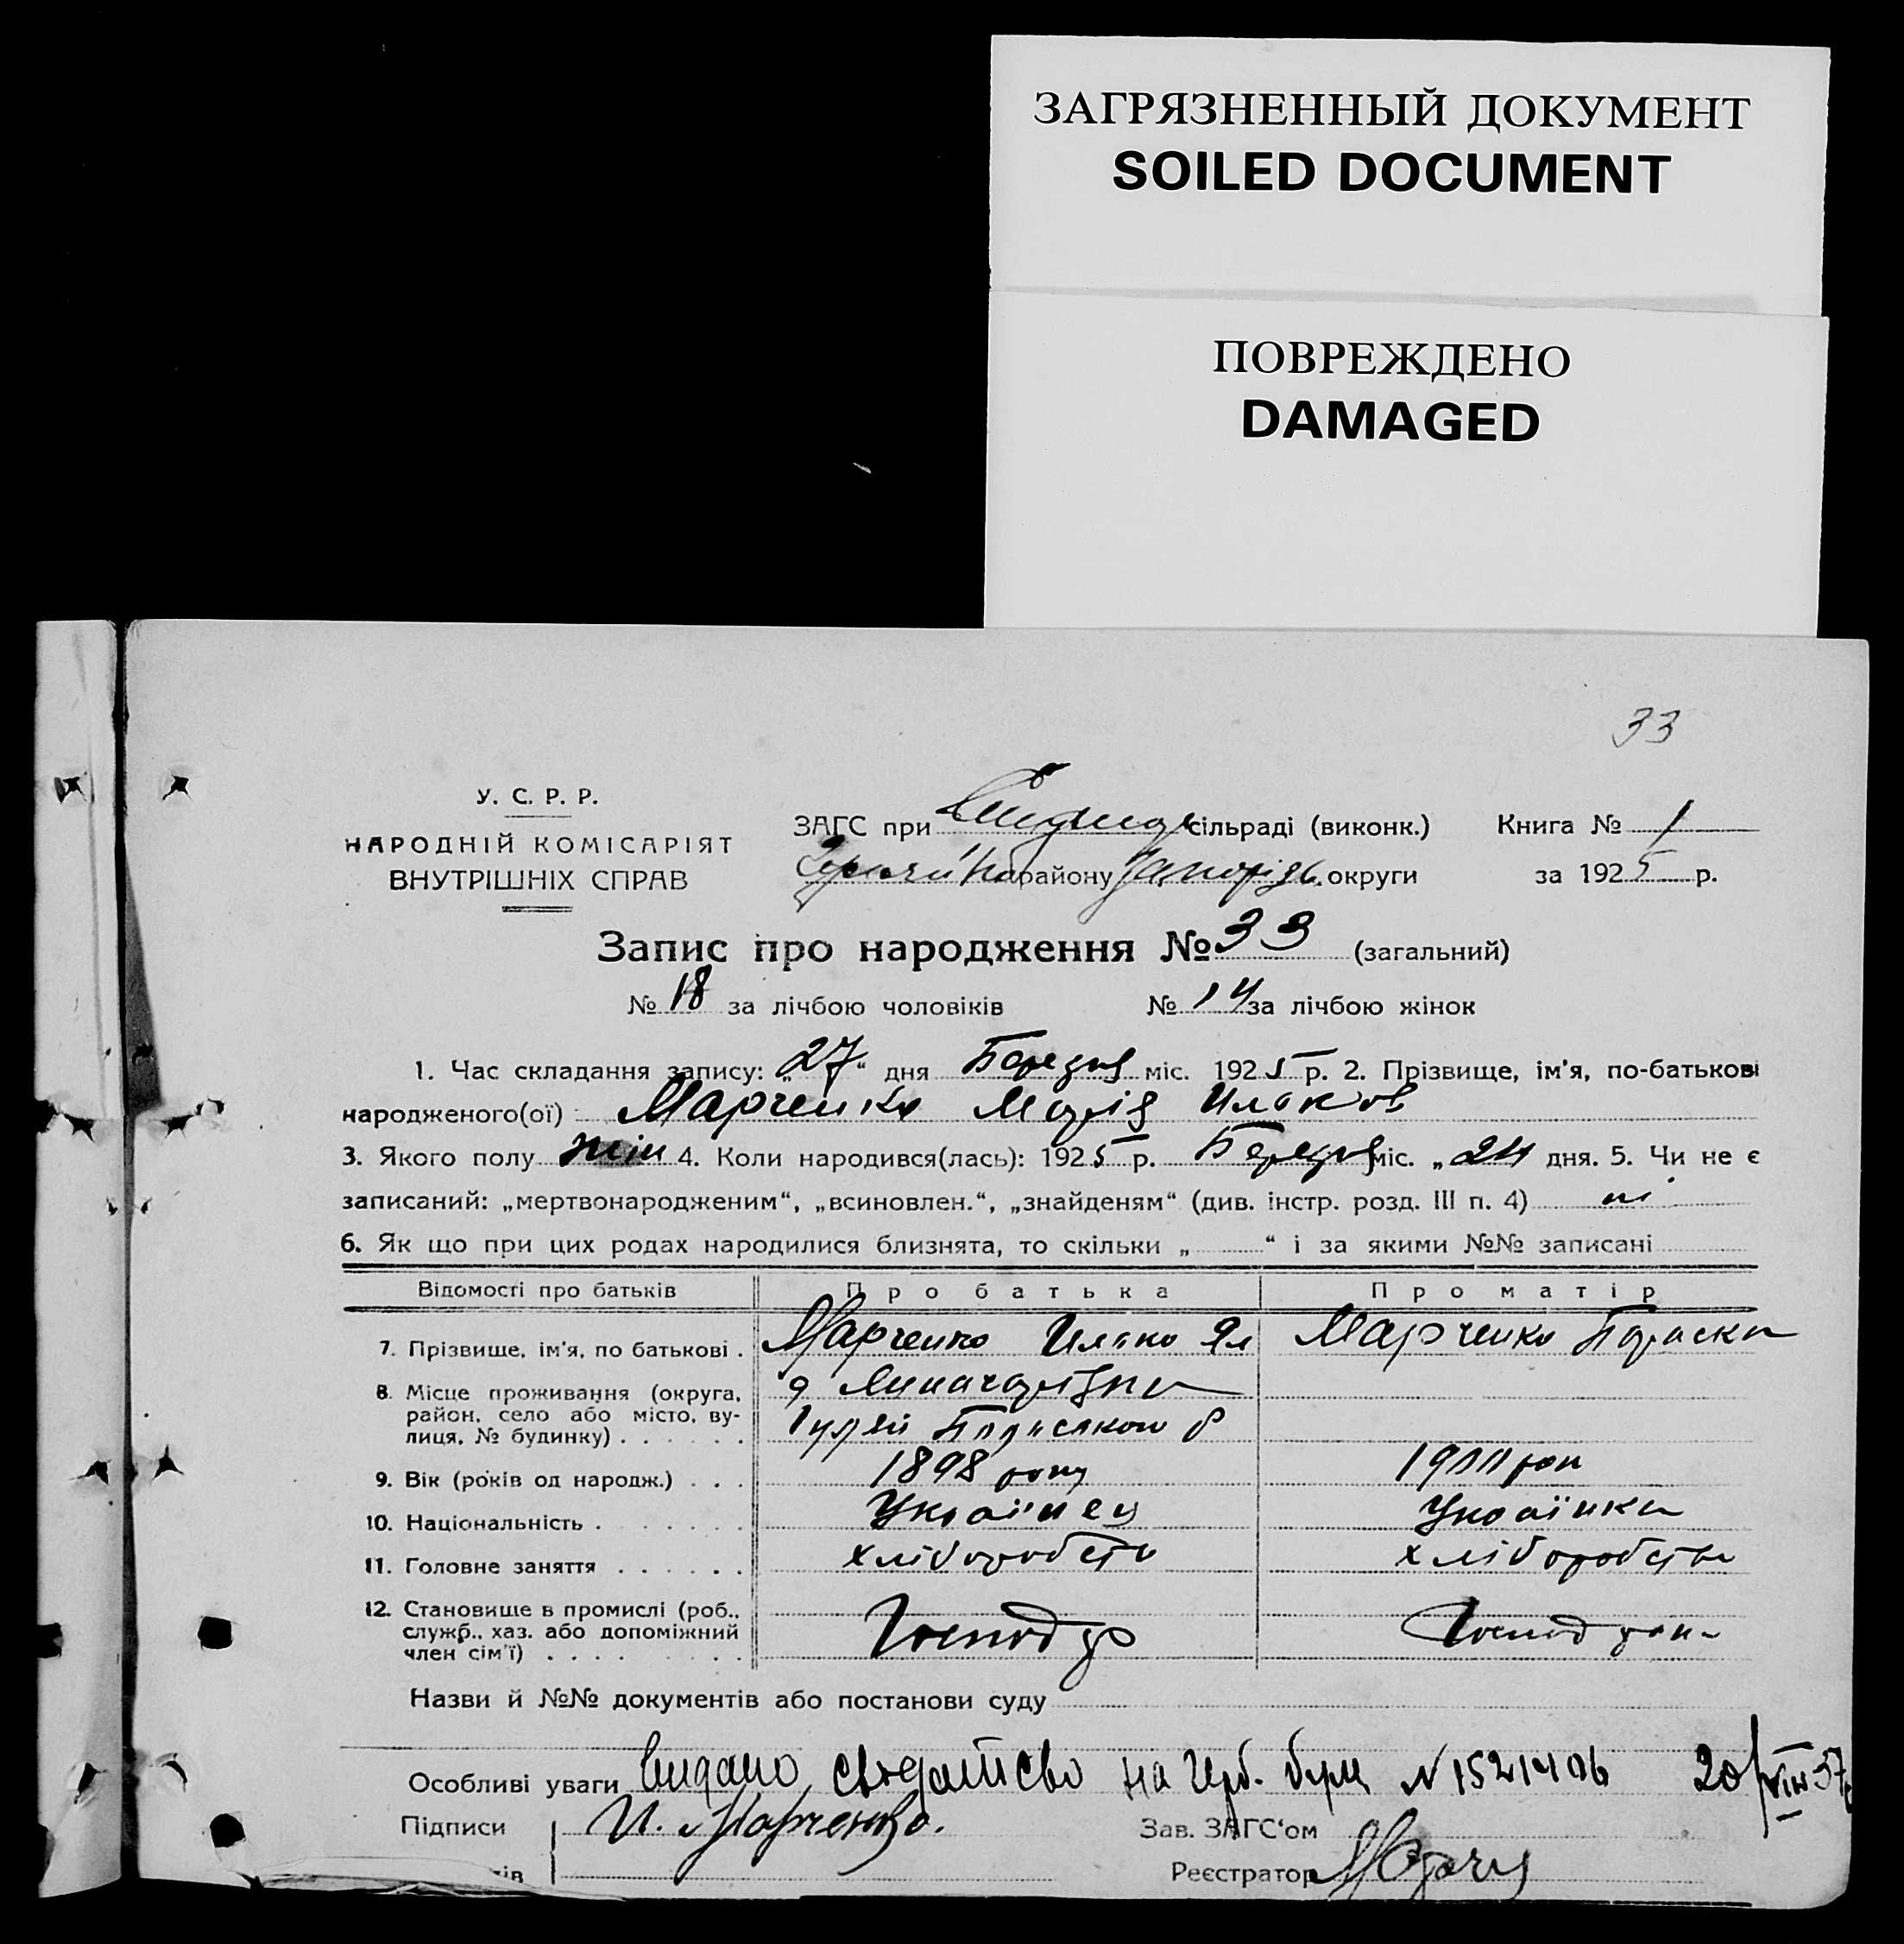 ЗАГРЯЗНЕННЫЙ ДОКУМЕНТ
SOILED DOCUMENT
ПОВРЕЖДЕНО
DAMAGED
33
У. С. Р. Р.
НАРОДНІЙ КОМІСАРІЯТ
ВНУТРІШНІХ СПРАВ
ЗАГС при сільраді (виконк.) Книга № 1
району Запорізь. округи за 1925 р.
Запис про народження № 33 (загальний)
№ 18 за лічбою чоловіків № 14 за лічбою жінок
1. Час складання запису: „27“ дня Березня міс. 1925 р. 2. Прізвище, ім'я, по-батькові
народженого(ої) Марченко Марія Ильков
3. Якого полу жін 4. Коли народився(лась): 1925 р. Березня міс. „24 дня. 5. Чи не є
записаний: „мертвонародженим“, „всиновлен.“, „знайденям“ (див. інстр. розд. III п. 4) ні
6. Як що при цих родах народилися близнята, то скільки „ “ і за якими №№ записані
Відомості про батьків Про батька Про матір
7. Прізвище, ім'я, по батькові . Марченко Илько Марченко Параска
8. Місце проживання (округа,
район, село або місто, ву-
лиця, № будинку) . . . . . .
9. Вік (років од народж.) . . . 1898 року 1900 рок
10. Національність . . . . . . . Українец Українка
11. Головне заняття . . . . . . хліборобств хліборобства
12. Становище в промислі (роб.,
служб., хаз. або допоміжний
член сім'ї) . . . . . . . . . Господар
Назви й №№ документів або постанови суду
Особливі уваги видано свидетпсво на герб. бум N 1521406 20/VIII 57
Підписи И. Марченко. Зав. ЗАГС'ом
ів Реєстратор